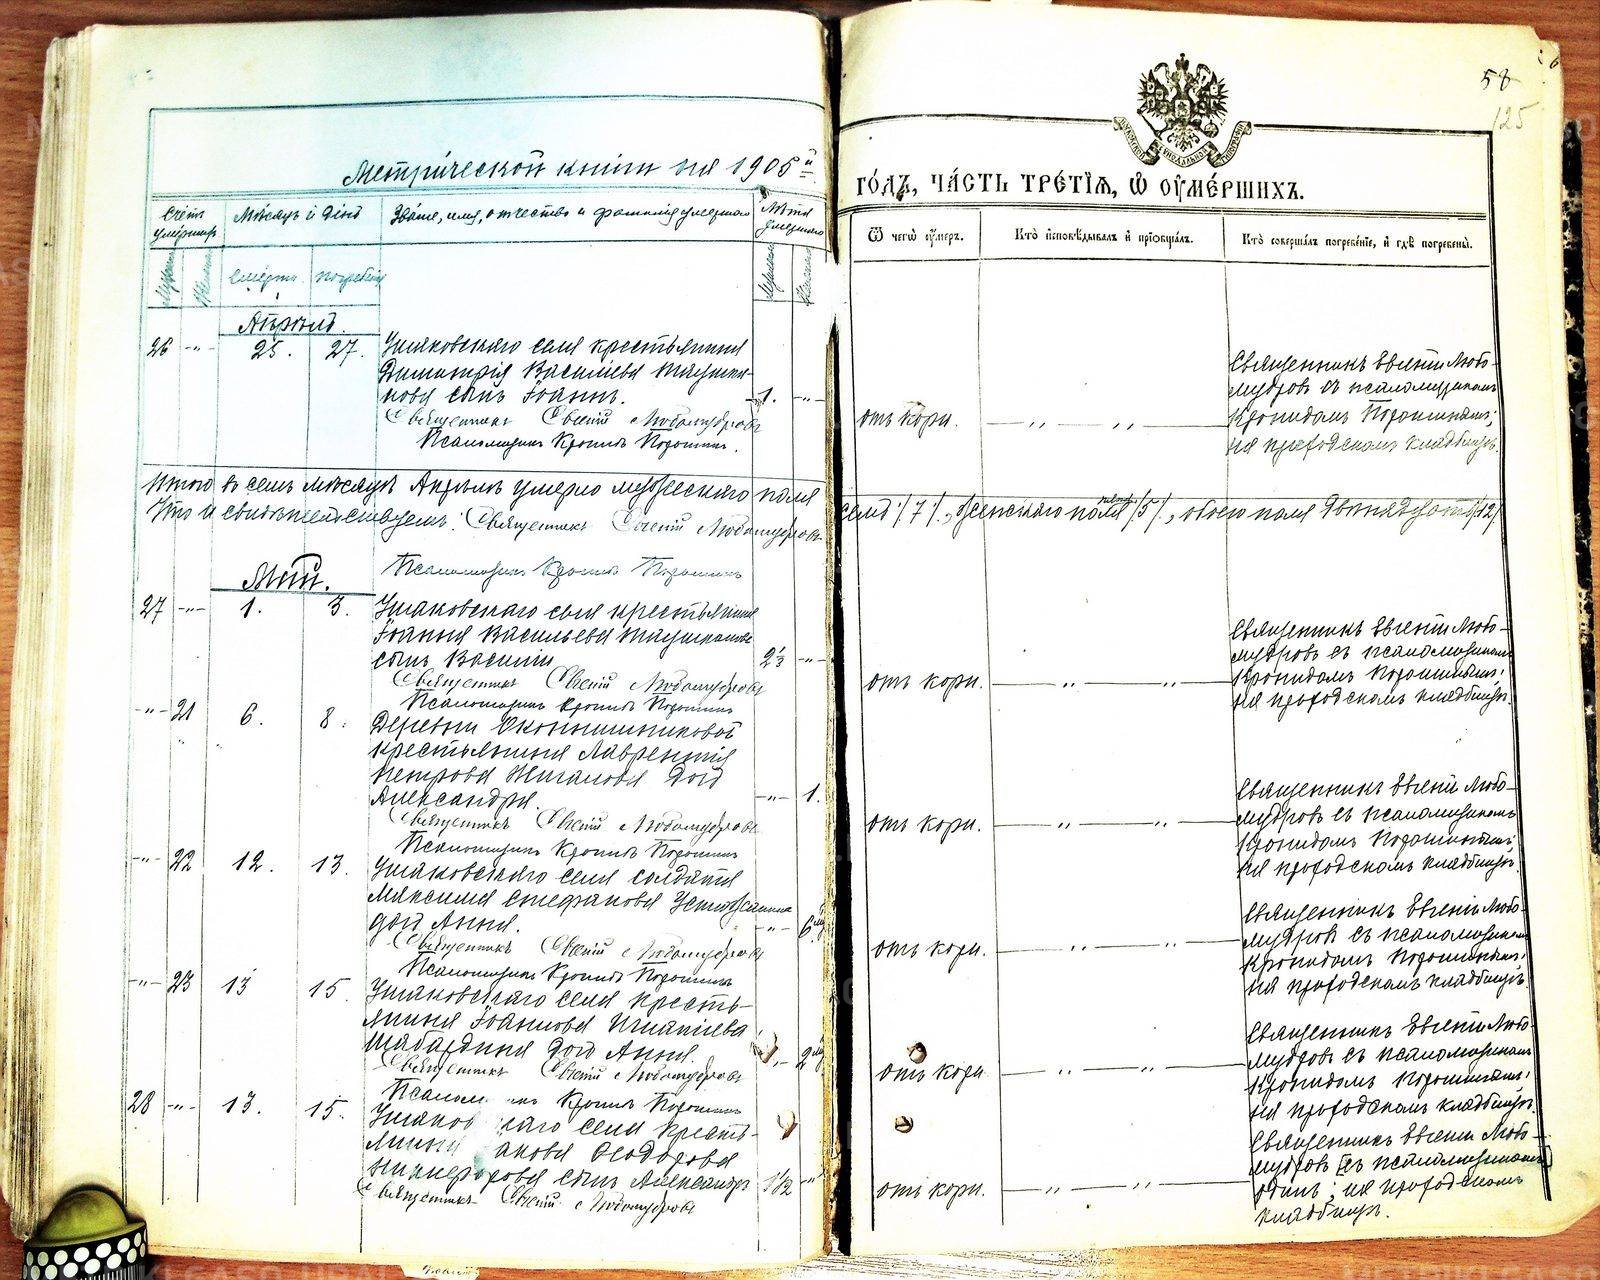 58
125
Метрической книги на 1905 й
годъ, часть третїѧ, ѡ оумершихъ.
Счетъ умершихъ
Мѣсяцъ и день
Званіе, имя, отчество и фамилія умершаго
Лѣта умершаго
Ѿ чегѡ оумеръ.
Кто исповѣдывалъ и прїобщалъ.
Кто совершалъ погребенїе, и гдѣ погребены.
смерти
погребенія
Апрѣль.
26 -"- 25. 27. Ушаковскаго села крестьянина
Димитрія Васильева
сынъ Іоаннъ. 1. -"-
Священникъ Евгеній Любомудровъ
Псаломщикъ Кронидъ Порошинъ.
отъ кори.
Священникъ Евгеній Любо-
мудровъ съ псаломщикомъ
Кронидомъ Порошинымъ;
на приходскомъ кладбищѣ.
Итого въ семъ мѣсяцѣ Апрѣлѣ умерло мужескаго пола
семь /7/, женскаго пола пять /5/, обоего пола двѣнадцать /12/
Что и свидѣтельствуемъ: Священникъ Евгеній Любомудровъ
Псаломщикъ Кронидъ Порошинъ
Май.
27 -"- 1. 3. Ушаковскаго села крестьянина
Іоанна Васильева
сынъ Василій 2⅓ -"-
Священникъ Евгеній Любомудровъ
Псаломщикъ Кронидъ Порошинъ
отъ кори.
Священникъ Евгеній Любо-
мудровъ съ псаломщикомъ
Кронидомъ Порошинымъ;
на приходскомъ кладбищѣ.
-"- 21 6. 8. Деревни
крестьянина Лаврентія
Петрова Жиганова дочь
Александра. -"- 1.
Священникъ Евгеній Любомудровъ
Псаломщикъ Кронидъ Порошинъ
отъ кори.
Священникъ Евгеній Любо-
мудровъ съ псаломщикомъ
Кронидомъ Порошинымъ;
на приходскомъ кладбищѣ.
-"- 22 12. 13. Ушаковскаго села солдата
Максима Стефанова
дочь Анна. -"- 6
Священникъ Евгеній Любомудровъ
Псаломщикъ Кронидъ Порошинъ
отъ кори.
Священникъ Евгеній Любо-
мудровъ съ псаломщикомъ
Кронидомъ Порошинымъ;
на приходскомъ кладбищѣ.
-"- 23 13 15. Ушаковскаго села кресть-
янина Іоаннова Игнатіева
Шабардина дочь Анна. 2
Священникъ Евгеній Любомудровъ
Кронидъ Порошинъ
отъ кори
Священникъ Евгеній Любо-
мудровъ съ псаломщикомъ
Кронидомъ Порошинымъ;
на приходскомъ кладбищѣ.
28 -"- 13. 15. села кресть-
Ѳеодорова
сынъ Александръ 1½ -"-
Священникъ Евгеній Любомудровъ
отъ кори.
Священникъ Евгеній Любо-
мудровъ [съ псаломщикомъ]
одинъ; на приходскомъ
кладбищѣ.